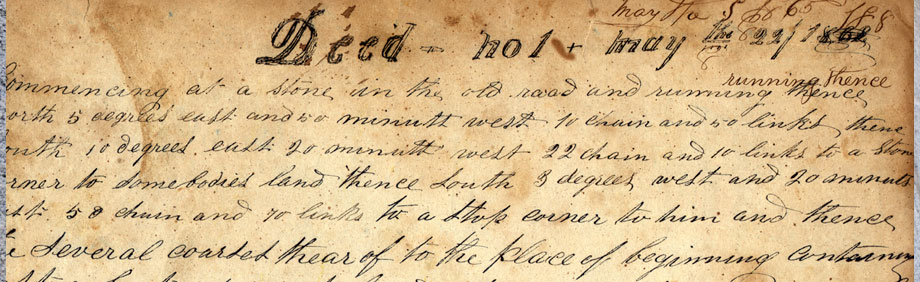 may the 5 1865 188
Deed - no 1 + may the 22/ 18
running thence
ommencing at a stone in the old road and running thence
orth 5 degrees east and 50 minutt west 10 chain and 50 links thence
outh 10 degrees east 20 minutt west 22 chain and 10 links to a Stone
rner to somebodies land thence South 3 degrees west and 20 minuts
ast 50 chain and 70 links to a stop corner to him and thence
e several coarses thear of to the place of beginning containing